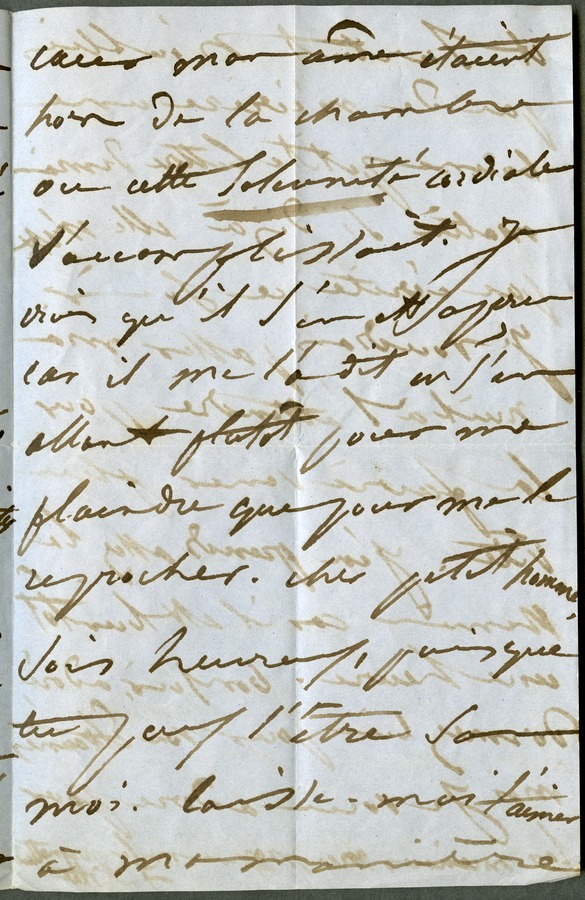 car mon âme étaient
hors de la chambre
ou cette Solennité cordiale
s'accomplissait. Je
crois qu'il s'en est aperçu
car il me l'a dit en s'en
allant plutôt pour me
plaindre que pour me le
reprocher. cher petit homme,
sois heureux, puisque
tu peux l'être sans
moi. laisse-moi t'aimer
à ma manière